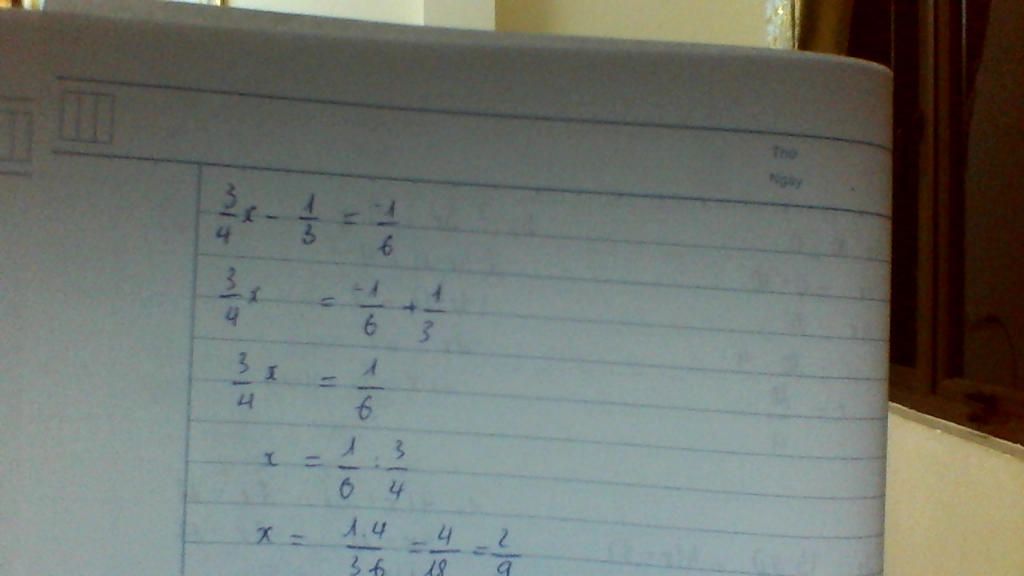 Thứ
Ngày
3/4 x - 1/3 = -1/6
3/4 x = -1/6 + 1/3
3/4 x = 1/6
x = 1/6 : 3/4
x = 1.4/3.6 = 4/18 = 2/9